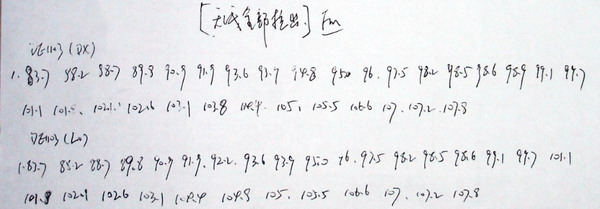 [天线全部拉出] Fm
DE1103 (DX)
1. 83.7 88.2 88.7 89.8 90.9 91.9 93.6 93.9 94.8 95.0 96. 97.5 98.2 98.5 98.6 98.9 99.1 99.7
101.1 102.1 102.6 103.1 103.8 104.4. 105. 105.5 106.6 107. 107.2. 107.8
DE1103 (Lo)
1. 83.7 88.2 88.7 89.8 90.9 91.9. 92.2. 93.6 93.9 95.0 96. 97.5 98.2 98.5 98.6 99.1 99.7 101.1
101.8 102.1 102.6 103.1 104.4 104.8 105. 105.5 106.6 107. 107.2 107.8